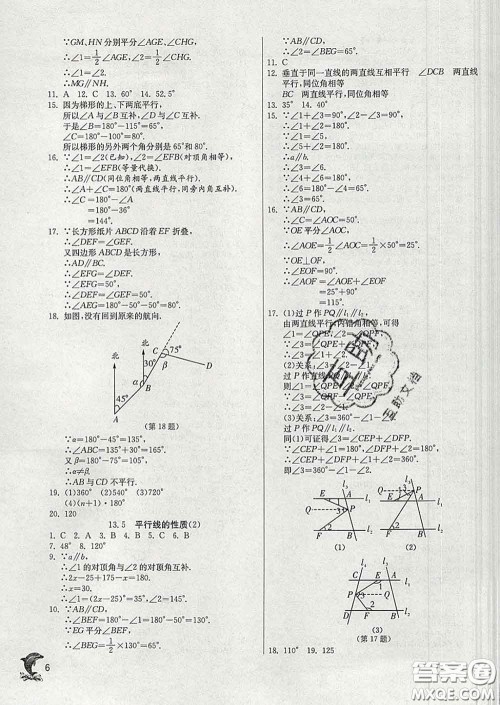 ∵GM,HN分别平分∠AGE,∠CHG,
∴∠1=1/2∠AGE,∠2=1/2∠CHG,
∴∠1=∠2,
∴MG∥NH.
11. A 12. C 13. 60° 14. 52.5°
15. 因为梯形的上、下两底平行,
所以∠A与∠B互补,∠D与∠C互补.
于是∠B=180°-115°=65°,
∠C=180°-100°=80°.
所以梯形的另外两个角分别是65°,80°.
16. ∵∠1=∠2(已知),∠2=∠EFB(对顶角相等),
∴∠1=∠EFB(等量代换).
∴AB∥CD(同位角相等,两直线平行).
∴∠A+∠C=180°(两直线平行,同旁内角互补).
∴∠C=180°-∠A
=180°-36°
=144°.
17. ∵长方形纸片ABCD沿着EF折叠,
∴∠DEF=∠GEF.
又四边形ABCD是长方形,
∴AD∥BC.
∴∠DEF=∠EFG=50°.
∴∠GEF=50°.
∴∠DEG=100°.
∵AD∥BC,
∴∠EGB=∠DEG=100°,
∠DEG+∠EGF=180°.
∴∠EGF=80°.
18. 如图,没有回到原来的航向.
北
北
C
75°
30°
β
D
α
B
45°
A
(第18题)
∵α=180°-45°=135°,
∴∠ABC=135°+30°=165°.
又β=180°-75°=105°,
∴α≠β.
∴AB与CD不平行.
19. (1)360° (2)540° (3)720°
(4)(n+1)·180°
20. 120
13.5 平行线的性质(2)
1. C 2. A 3. B 4. D 5. B 6. B
7. 48° 8. 120°
9. ∵a∥b,
∴∠1的对顶角与∠2的对顶角互补.
∴2x-25+175-x=180.
∴x=30.
∴∠1=(2x-25)°=35°.
10. ∵AB∥CD,
∴∠BEF=180°-∠1=130°.
∵EG平分∠BEF,
∴∠BEG=1/2∠BEF=1/2×130°=65°.
∵AB∥CD,
∴∠2=∠BEG=65°.
11. C
12. 垂直于同一直线的两直线互相平行 ∠DCB 两直线
平行,同位角相等
BC 两直线平行,同位角相等
13. 35° 14. 40°
15. ∵∠1+∠2=180°,
∠2+∠5=180°,
∴∠1=∠5.
∴a∥b.
∴∠3=∠6.
∵∠6+∠4=180°,
∴∠4=180°-∠6
=180°-∠3.
16. ∵AB∥CD,
∴∠C=∠AOC=50°.
∵OE平分∠AOC,
∴∠AOE=1/2∠AOC=1/2×50°=25°.
∵OE⊥OF,
∴∠EOF=90°.
∴∠AOF=∠AOE+∠EOF
=25°+90°
=115°.
17. (1)过P作PQ∥l₁∥l₂.
由两直线平行,内错角相等,可得
(2)关系:
过P作直线
则∠1=∠QPE
(3)关系:∠3=360°-∠1-∠2.
过P作PQ∥l₁∥l₂.
同(1)可证得∠3=∠CEP+∠DFP.
∵∠CEP+∠1=180°,∠DFP+∠2=180°,
∴∠CEP+∠DFP+∠1+∠2=360°.
即∠3=360°-∠1-∠2.
(1)
(2)
(3)
(第17题)
18. 110° 19. 125
6
答案圈
MXQE.COM